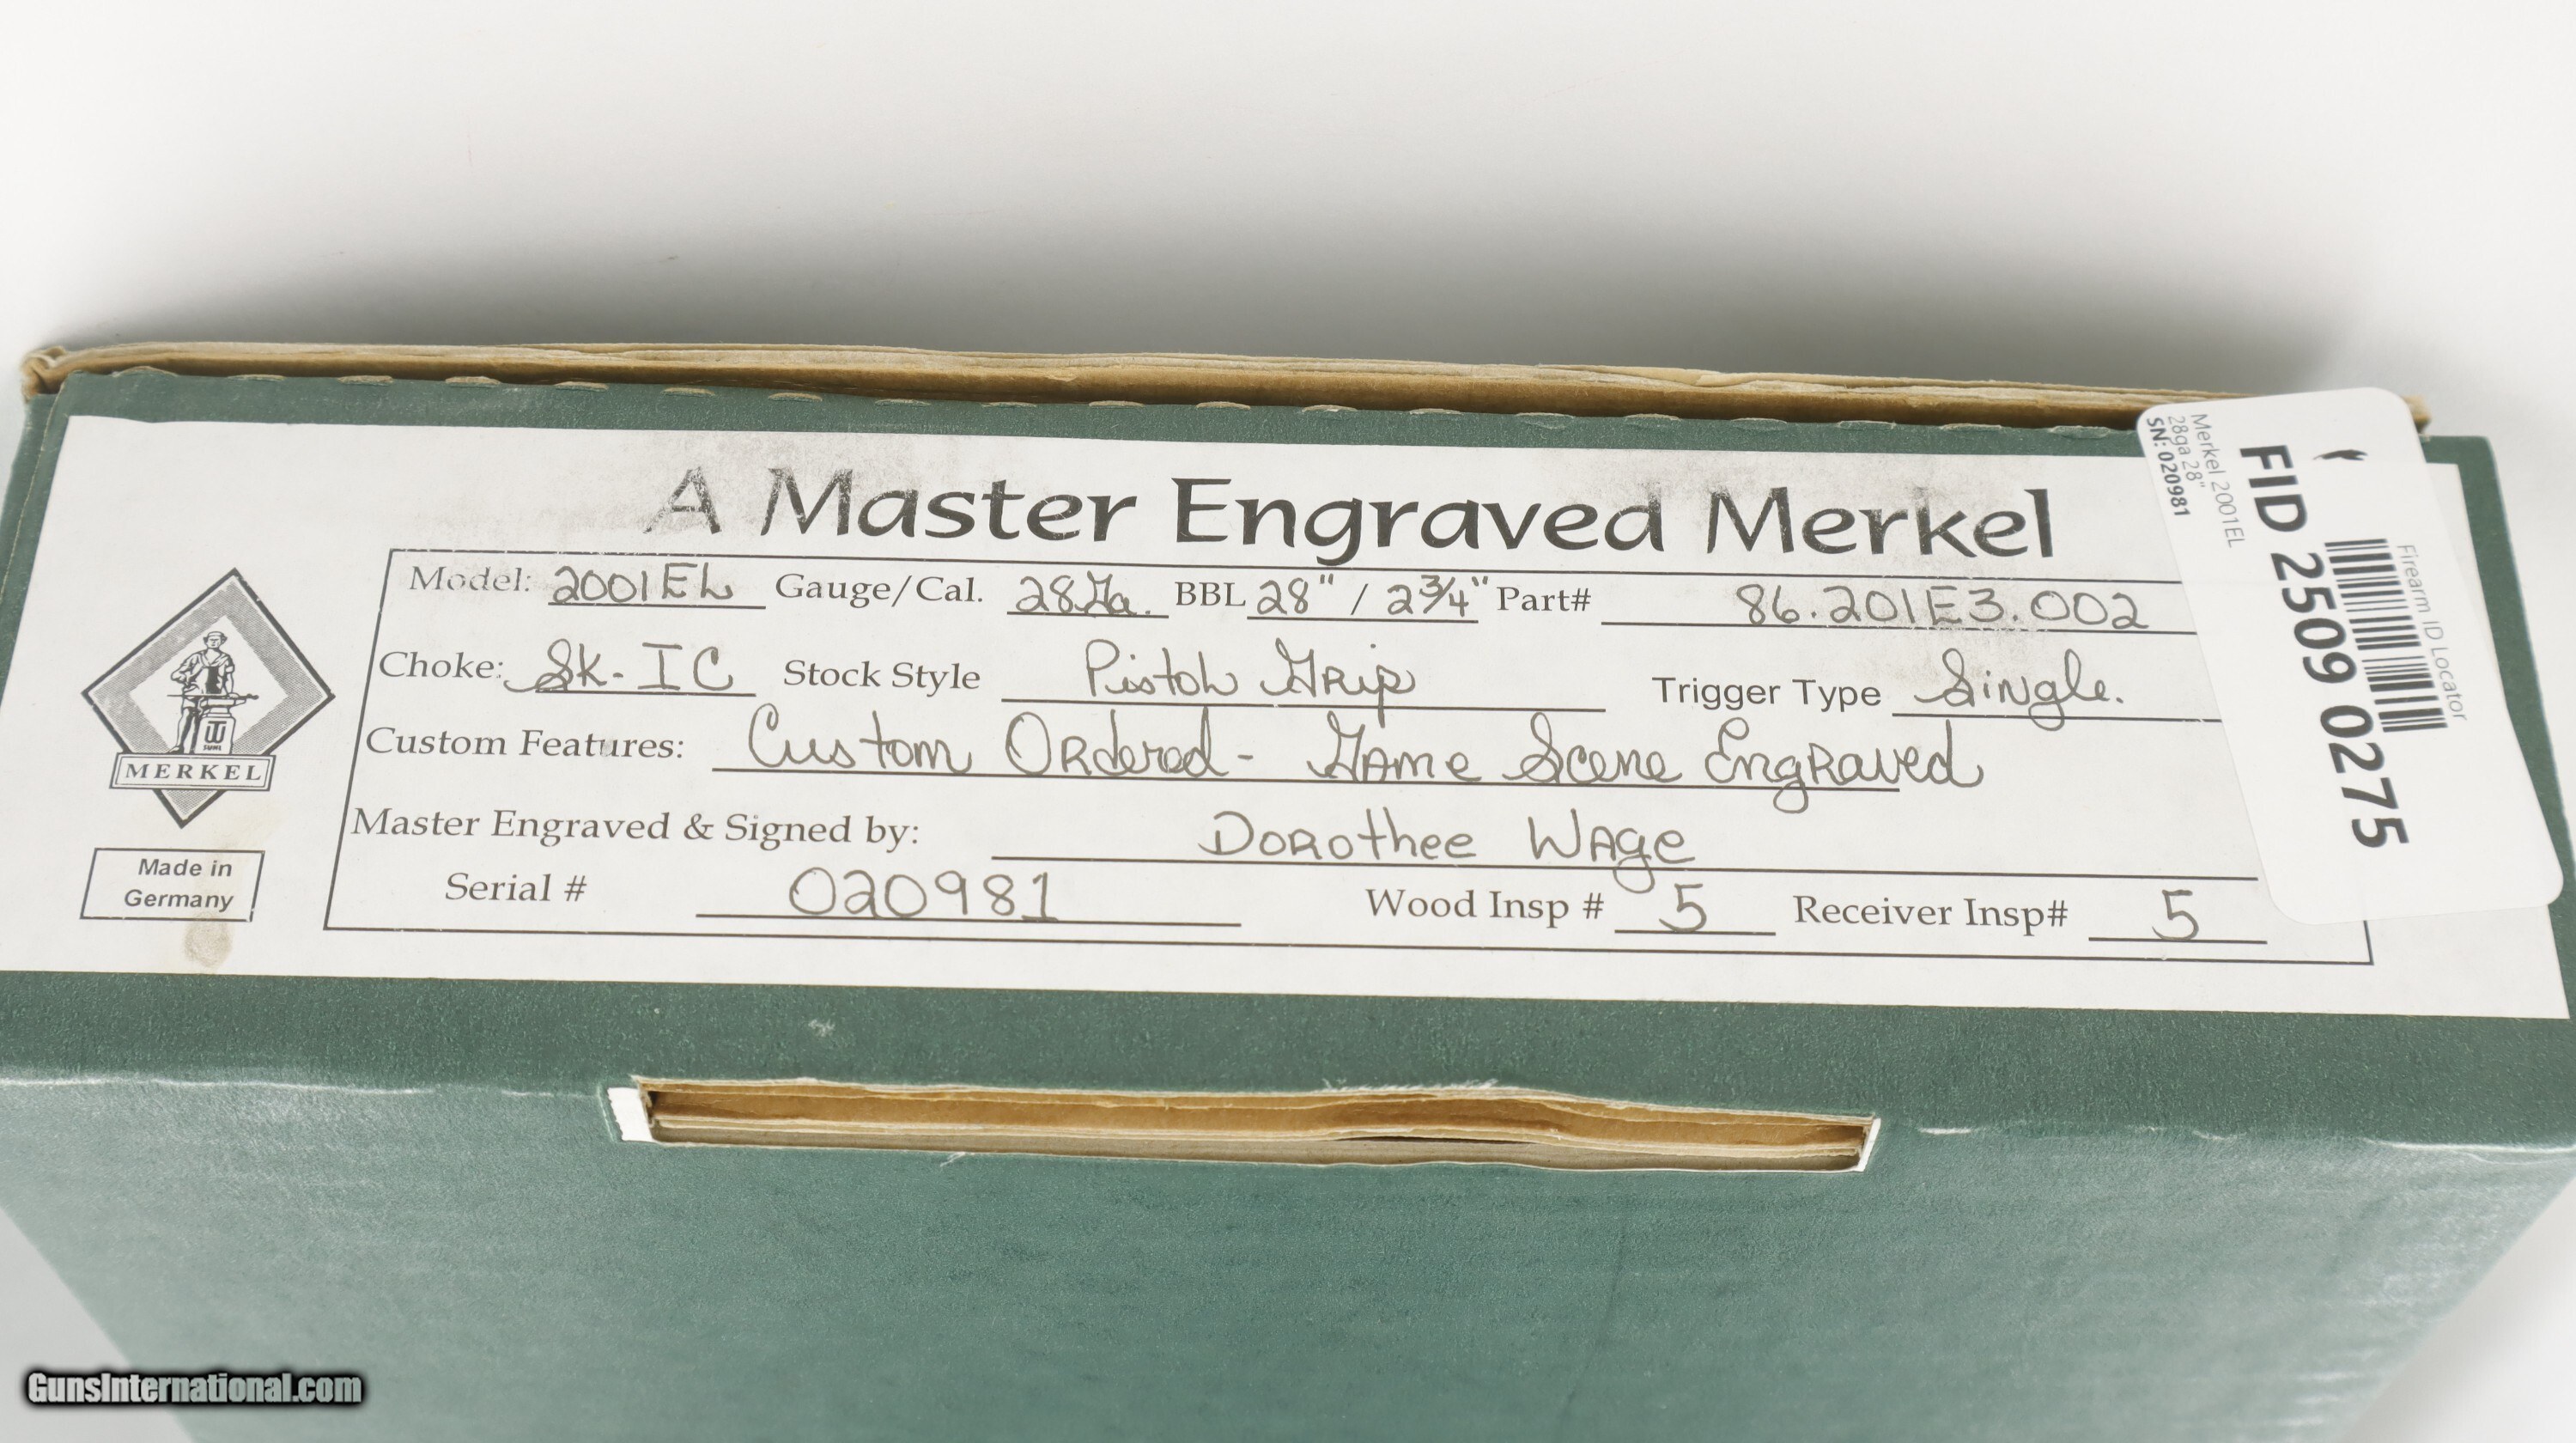 A Master Engraved Merkel
Model: 2001EL Gauge/Cal. 28Ga. BBL 28" / 2 3/4" Part# 86.201E3.002
Choke: Sk-IC Stock Style Pistol Grip Trigger Type Single.
Custom Features: Custom Ordered - Game Scene Engraved
Master Engraved & Signed by: Dorothee Wage
Serial # 020981 Wood Insp # 5 Receiver Insp# 5
SUHL
MERKEL
Made in
Germany
Firearm ID Locator
FID 2509 0275
Merkel 2001EL
28ga 28"
SN: 020981
GunsInternational.com